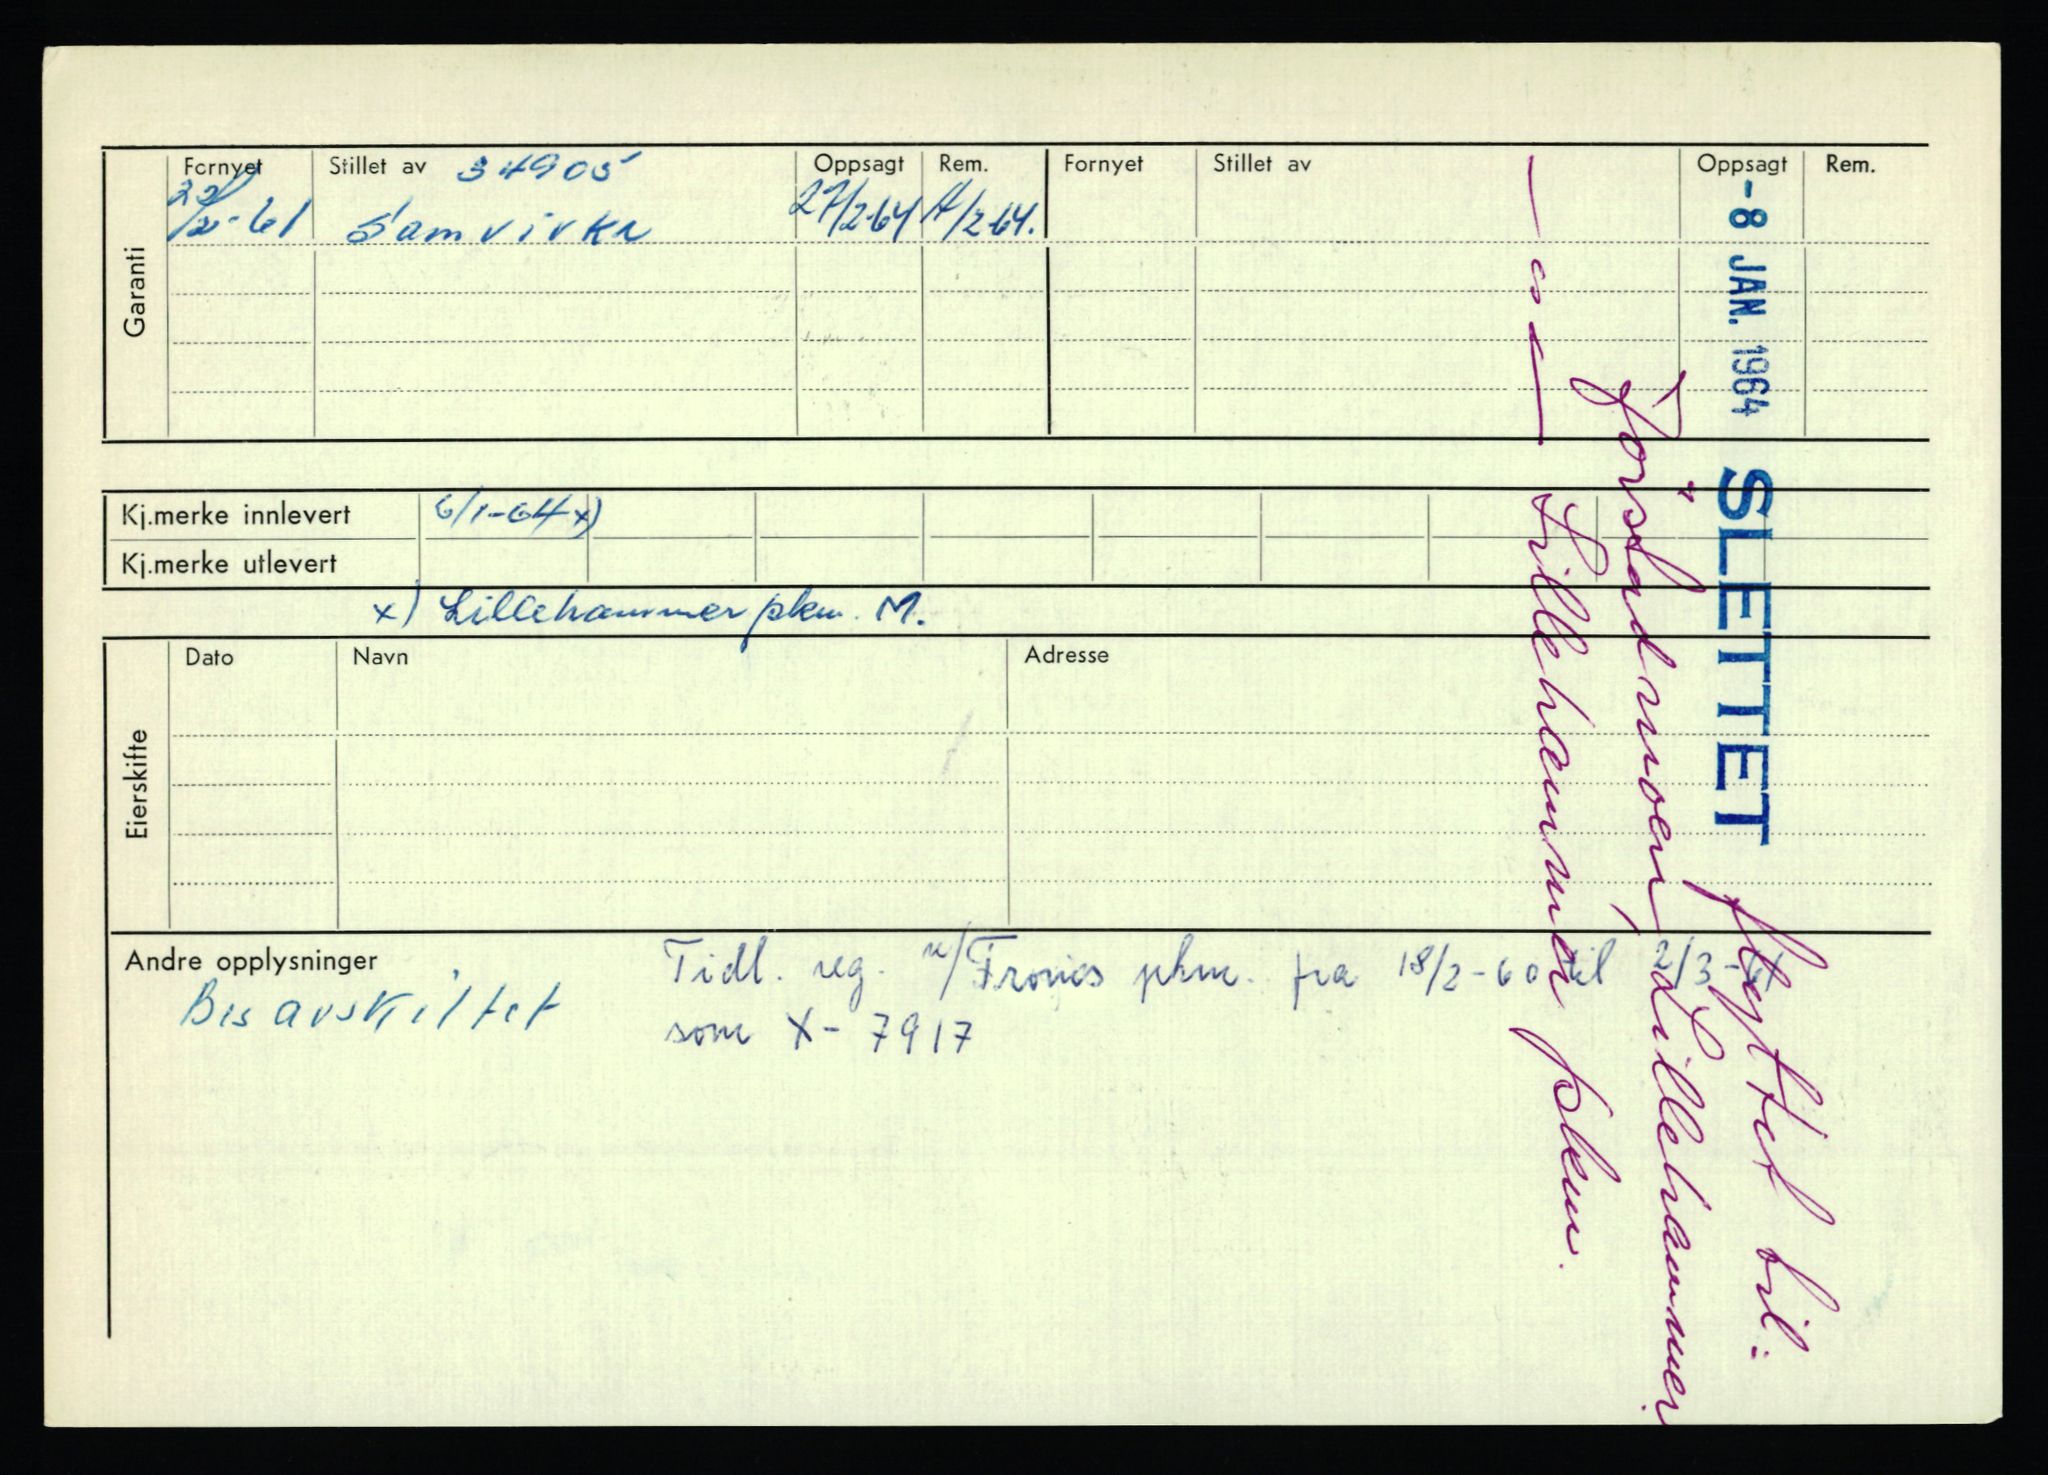 Garanti
Fornyet Stillet av 34905 Oppsagt Rem. Fornyet Stillet av Oppsagt Rem.
22/2-61 Samvirke 27/2-64 4/2-64.
Kj.merke innlevert 6/1-64 x)
Kj.merke utlevert
x) Lillehammer pkm. M.
Eierskifte
Dato Navn Adresse
Andre opplysninger
Bes avskiltet
Tidl. reg. v/Frones pkm. fra 18/2-60 til 2/3-61
som X-7917
-8 JAN. 1964 SLETTET
flyttet til:
Jørstadmoen, Lillehammer
Lillehammer pkm.